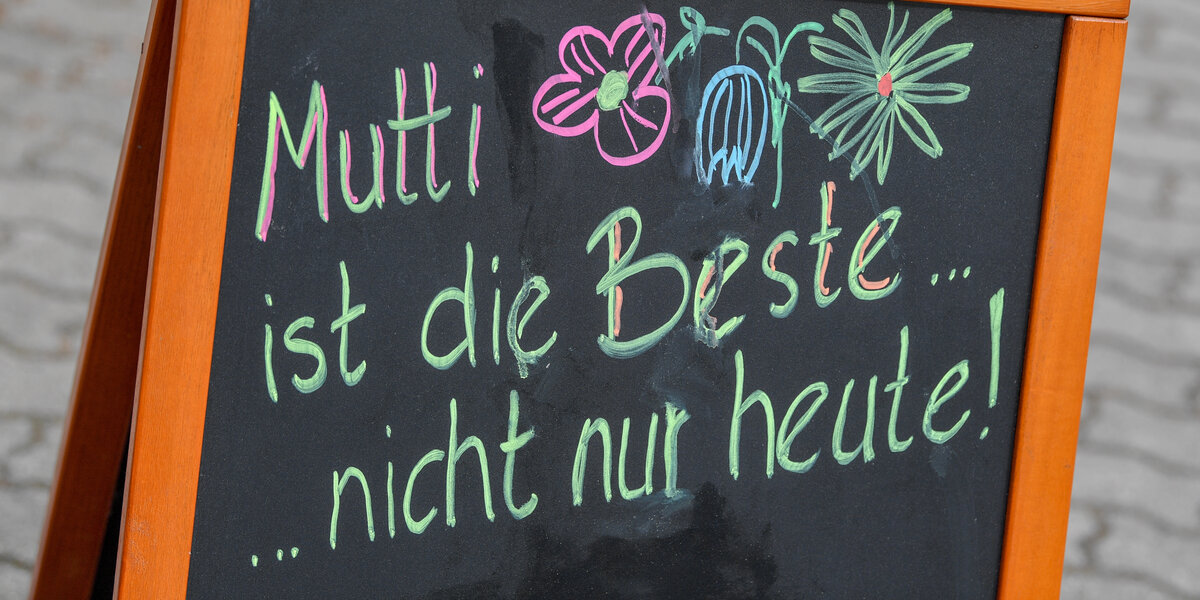 Mutti
ist die Beste ...
... nicht nur heute!